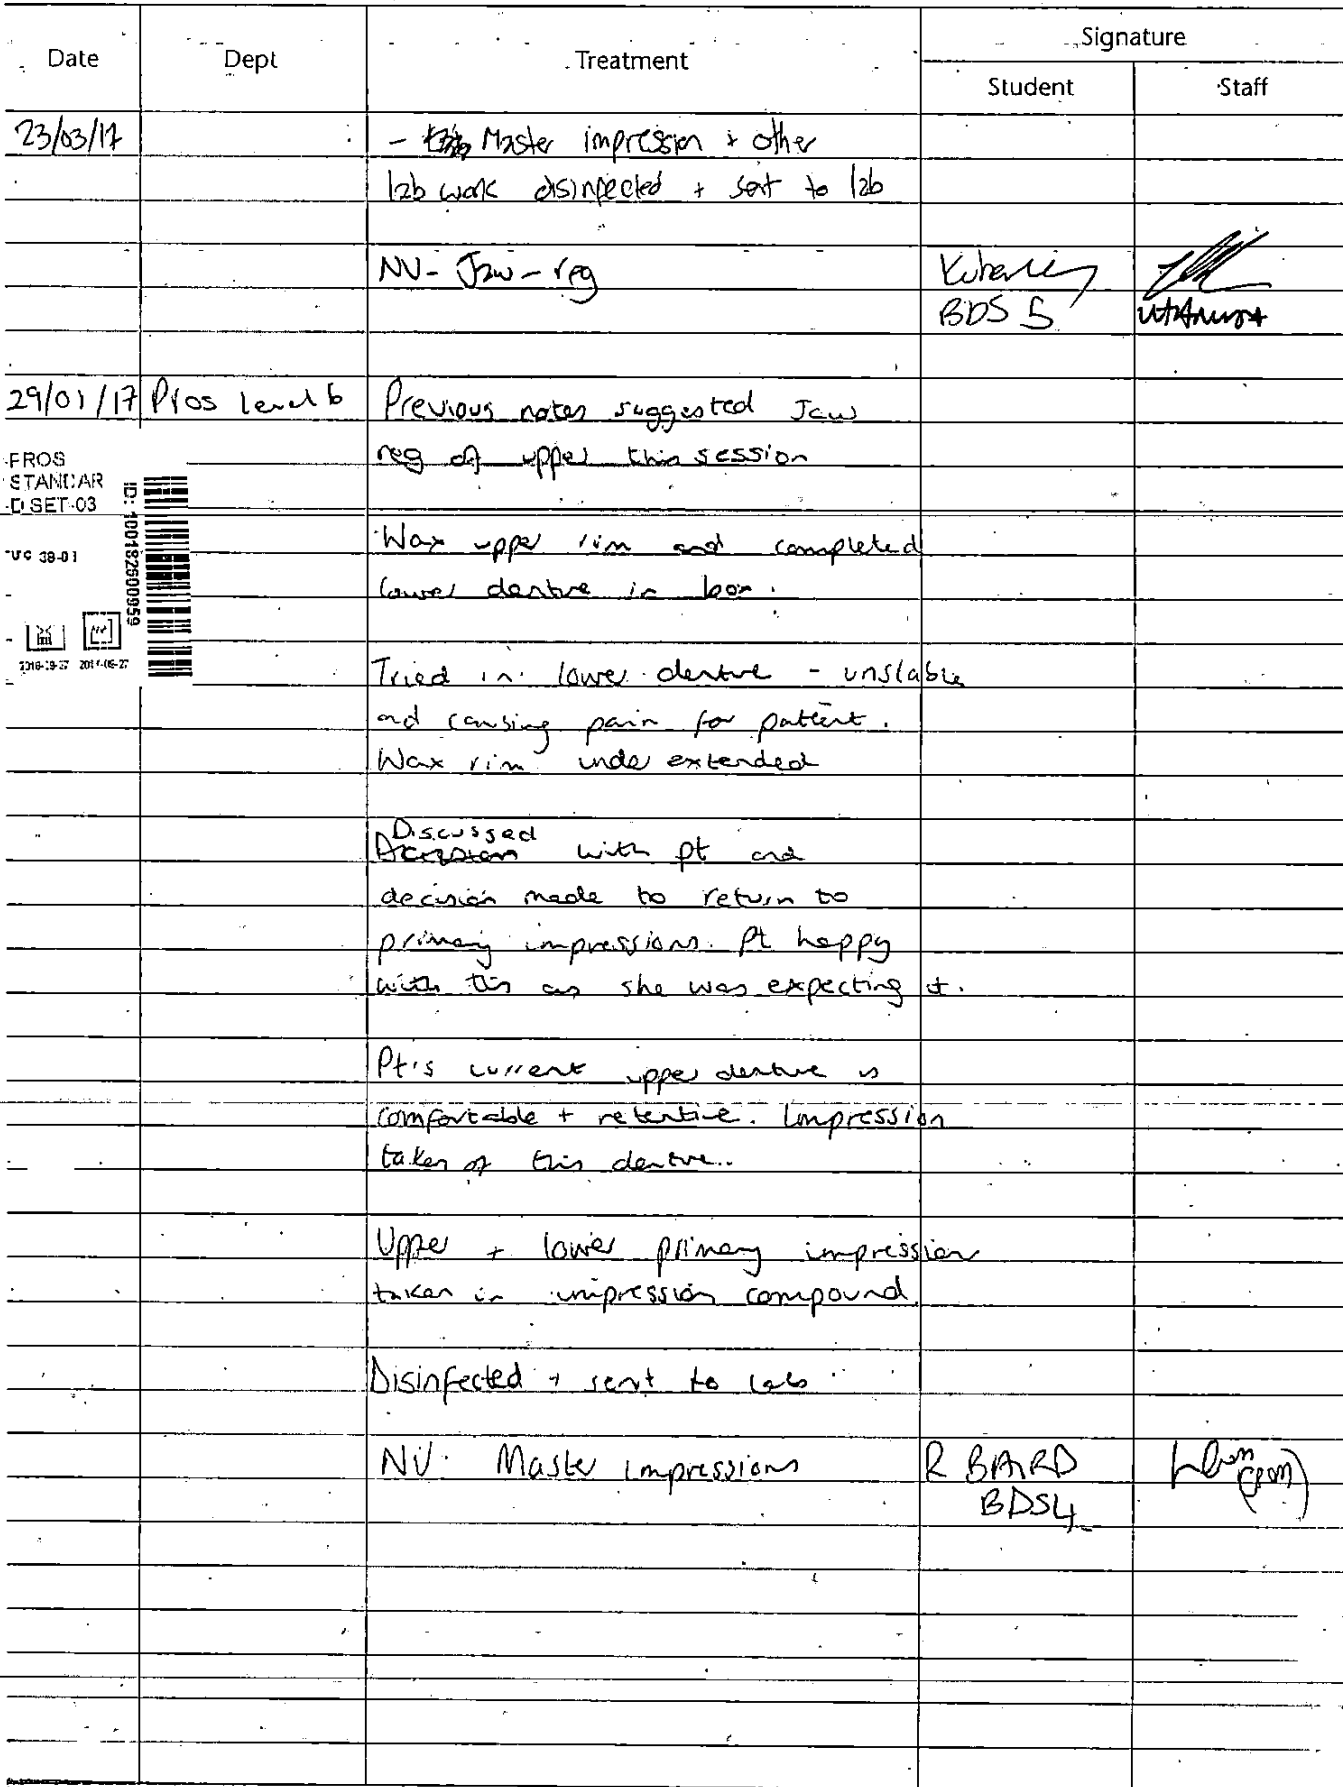 Date Dept Treatment Signature
Student Staff
23/03/17 - Master impression + other
lab work disinfected + sent to lab
NV - Jaw - reg
BDS 5
29/01/17 Pros level 6 Previous notes suggested Jaw
reg of upper this session
PROS
STANDAR
D SET-03
ID: 100192500959
Wax upper rim and completed
lower denture in box.
Tried in lower denture - unstable
and causing pain for patient.
Wax rim under extended
Discussed with pt and
decision made to return to
primary impressions. Pt happy
with this as she was expecting it.
Pt's current upper denture is
comfortable + retentive. Impression
taken of this denture.
Upper + lower primary impression
taken in impression compound.
Disinfected + sent to lab
NV: Master Impressions R BAIRD
BDS4